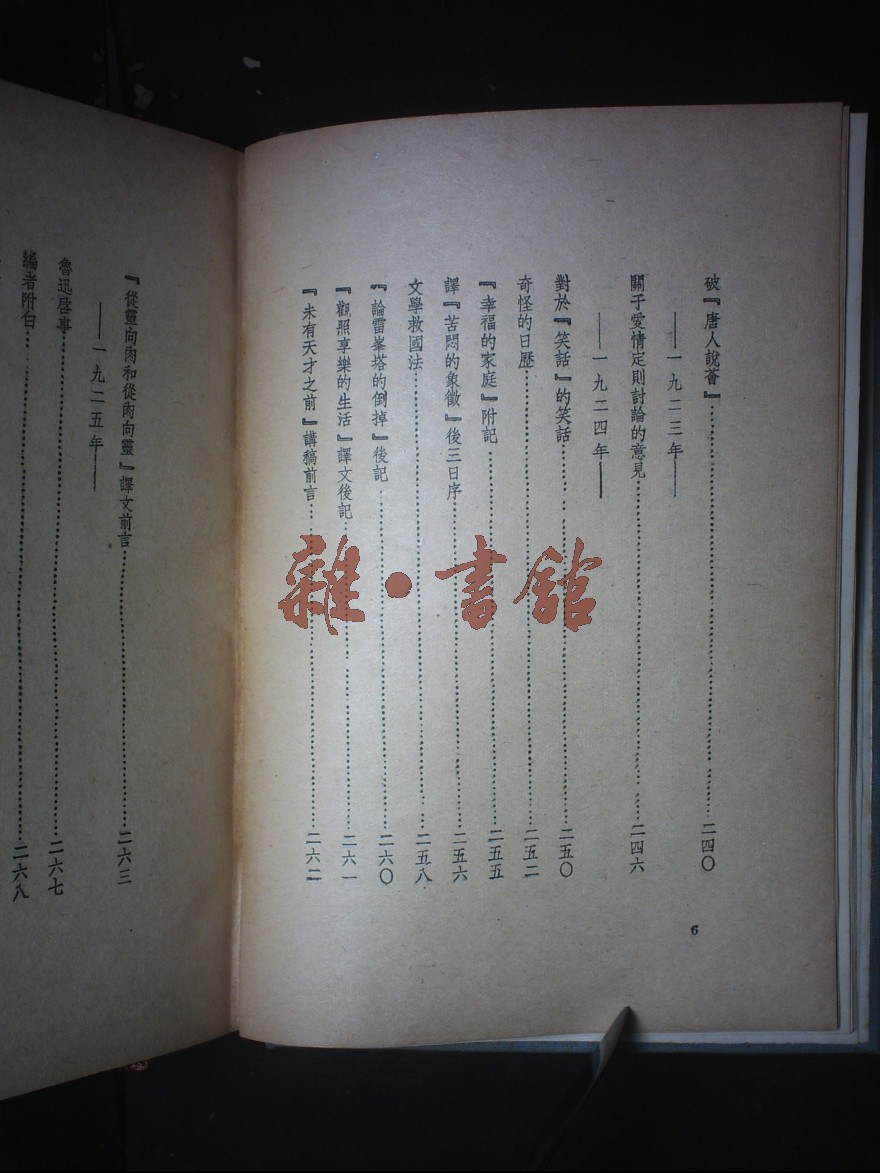 破『唐人說薈』……二四〇
——一九二三年——
關于愛情定則討論的意見……二四六
——一九二四年——
對於『笑話』的笑話……二五〇
奇怪的日歷……二五二
『幸福的家庭』附記……二五五
譯『苦悶的象徵』後三日序……二五六
文學救國法……二五八
『論雷峯塔的倒掉』後記……二六〇
『觀照享樂的生活』譯文後記……二六一
『未有天才之前』講稿前言……二六二
6
『從靈向肉和從肉向靈』譯文前言……二六三
——一九二五年——
魯迅啓事……二六七
編者附白……二六八
雜·書館